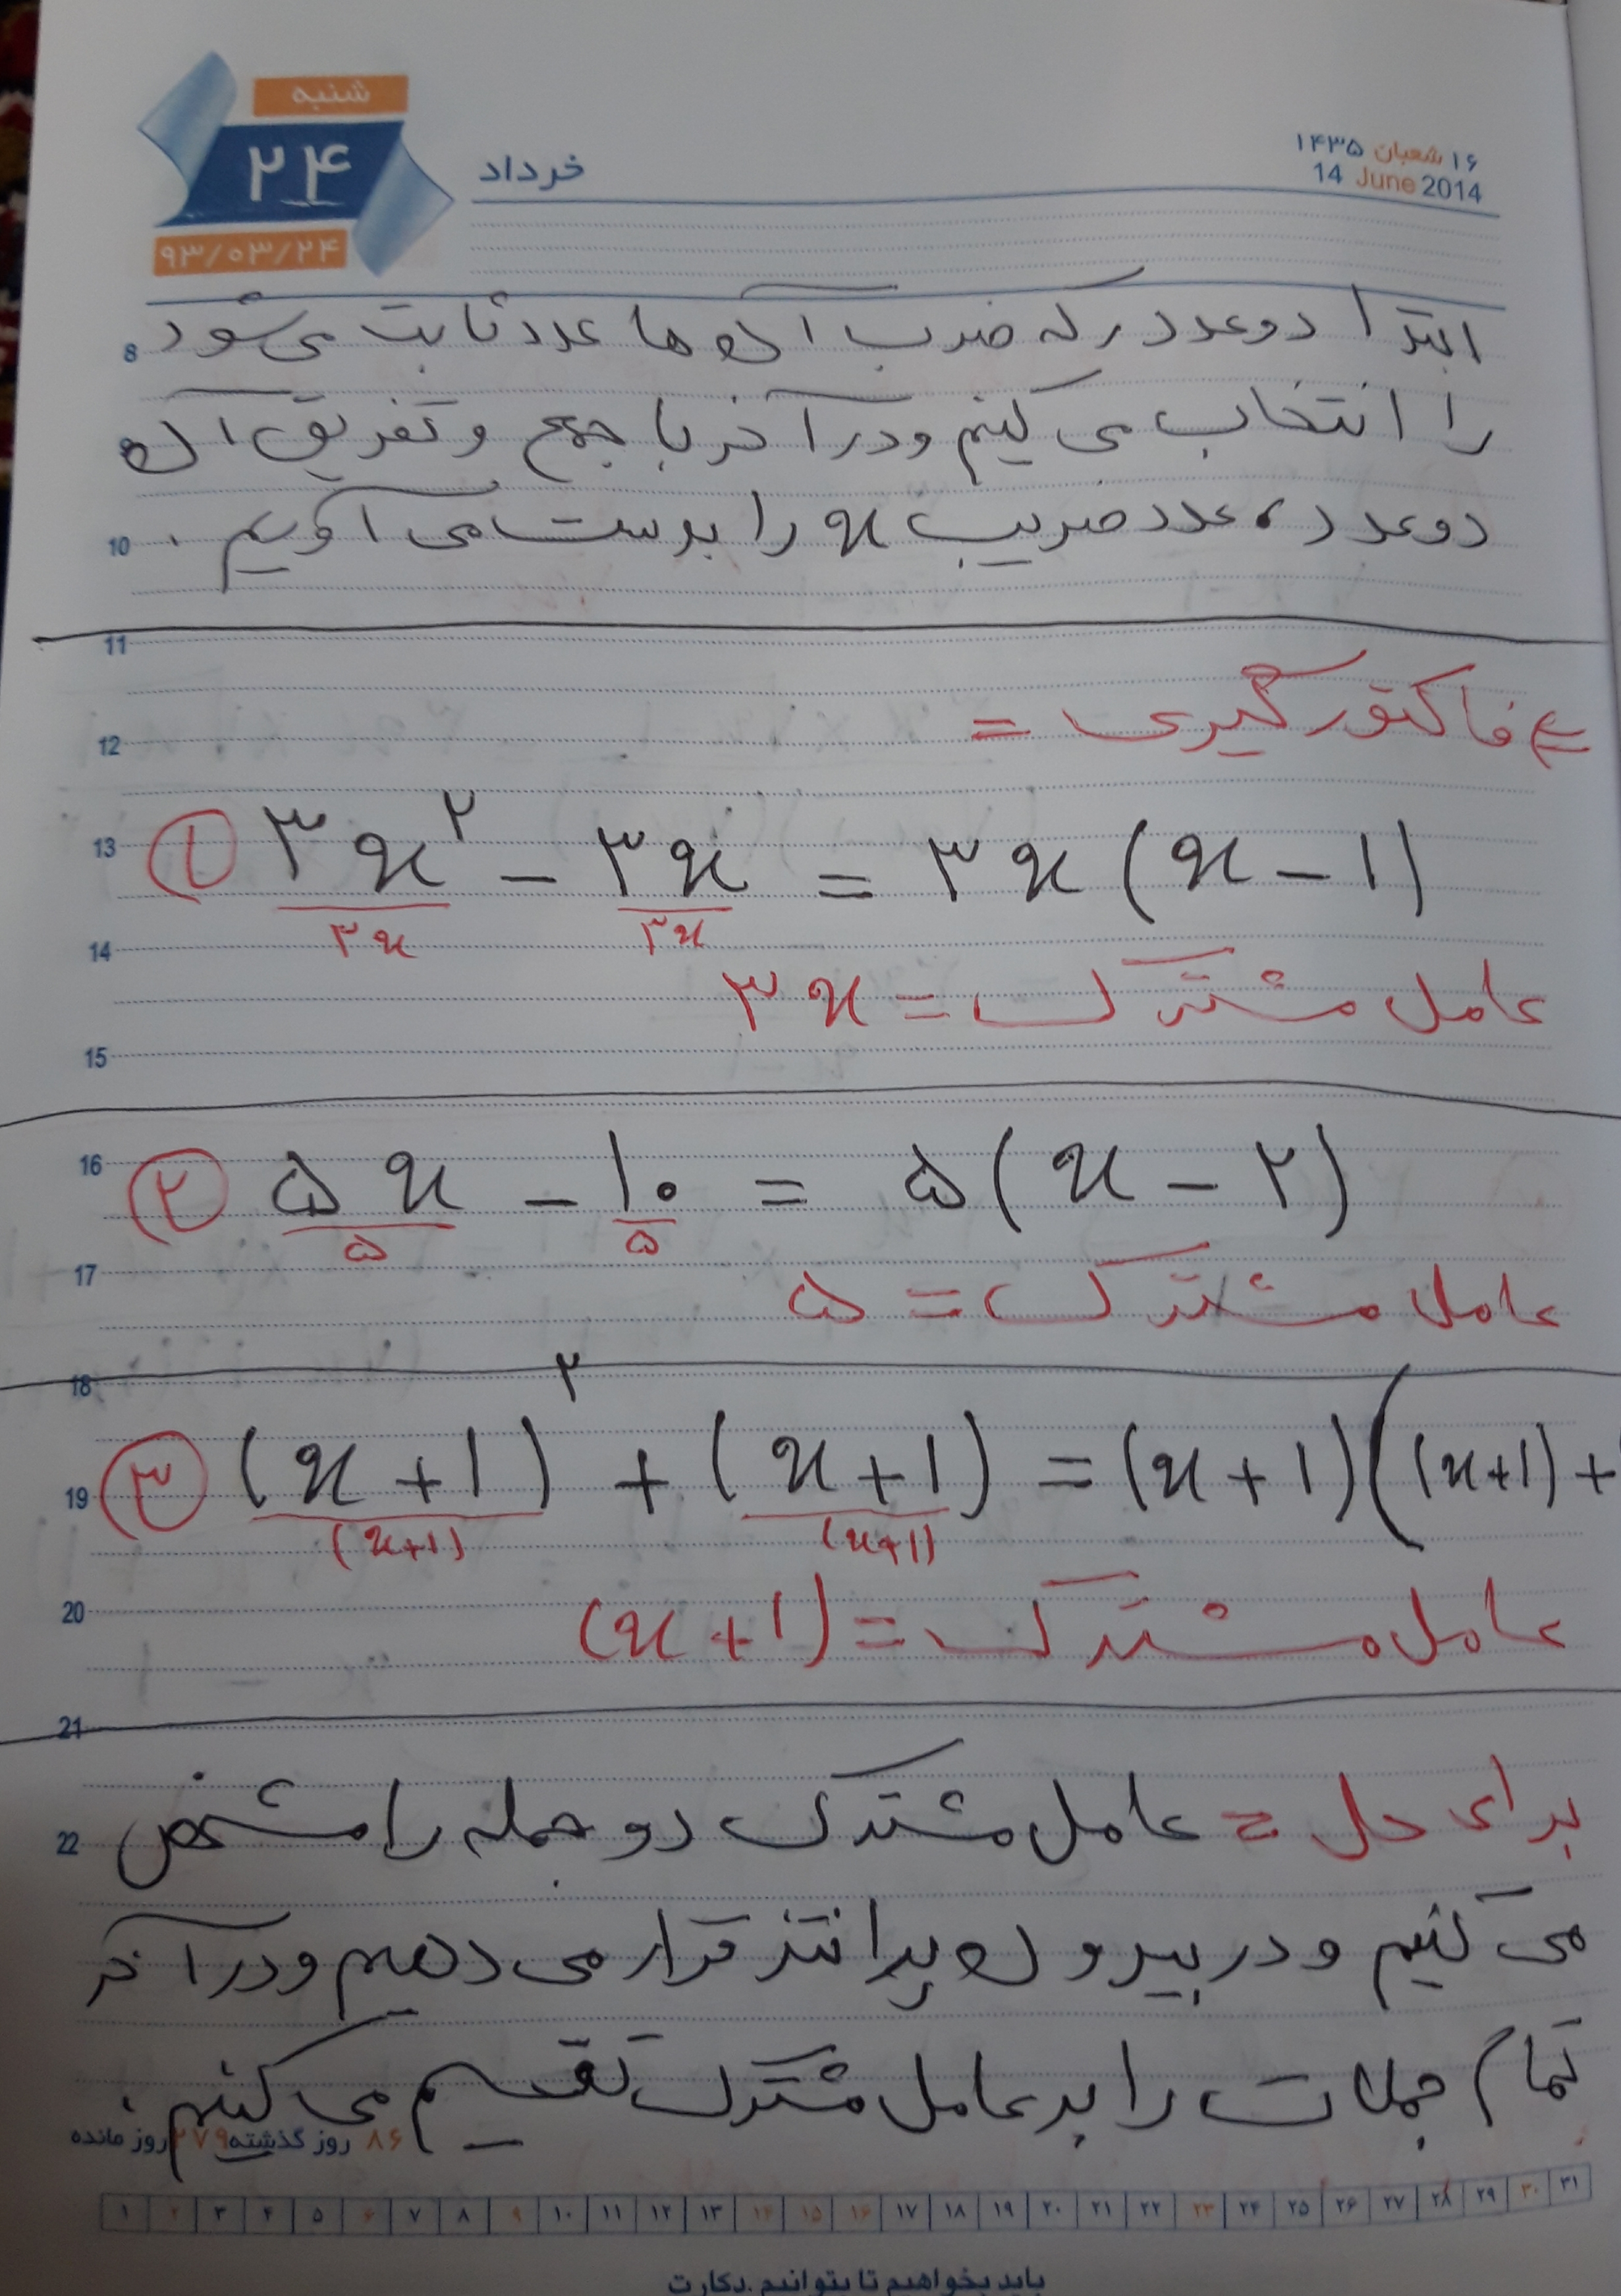 شنبه
۲۴
۹۳/۰۳/۲۴
خرداد
۱۶ شعبان ۱۴۳۵
14 June 2014
8 ابتدا دو عدد که ضرب آن ها عدد ثابت می شود
9 را انتخاب می کنیم و در آخر با جمع و تفریق آن
10 دو عدد، عدد ضریب x را بدست می آوریم.
11
12 فاکتور گیری =
13 ۱ ۳x^۲ - ۳x = ۳x (x - ۱)
۳x ۳x
14
عامل مشترک = ۳x
15
16 ۲ ۵x - ۱۰ = ۵(x - ۲)
۵ ۵
17
عامل مشترک = ۵
18
19 ۳ (x+۱)^۲ + (x+۱) = (x+۱)((x+۱)+
(x+۱) (x+۱)
20 عامل مشترک = (x+۱)
21
22 برای حل = عامل مشترک دو جمله را مشخص
می کنیم و در بیرون پرانتز قرار می دهیم و در آخر
تمام جملات را بر عامل مشترک تقسیم می کنیم.
۸۶ روز گذشته ۲۷۹ روز مانده
۱ ۲ ۳ ۴ ۵ ۶ ۷ ۸ ۹ ۱۰ ۱۱ ۱۲ ۱۳ ۱۴ ۱۵ ۱۶ ۱۷ ۱۸ ۱۹ ۲۰ ۲۱ ۲۲ ۲۳ ۲۴ ۲۵ ۲۶ ۲۷ ۲۸ ۲۹ ۳۰ ۳۱
باید بخواهیم تا بتوانیم. دکارت